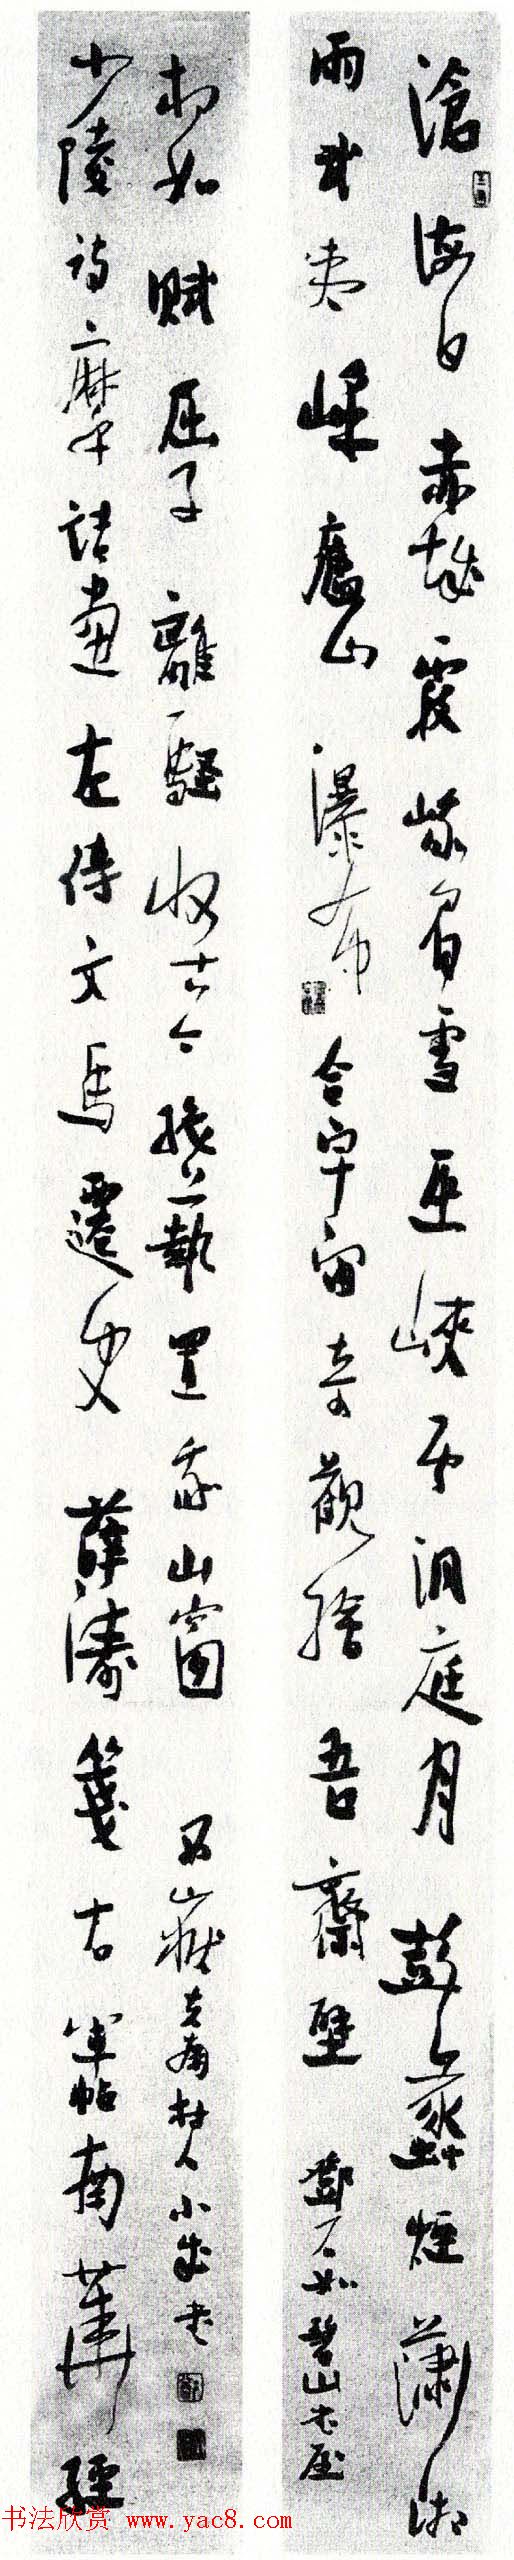 滄海日赤城霞峨眉雪巫峽雲洞庭月彭蠡煙瀟湘
雨武夷峰廬山瀑布合宇宙奇觀繪吾齋壁 鄧石如碧山書屋
少陵詩摩詰畫左傳文馬遷史薛濤箋右軍帖南華經
相如賦屈子離騷收古今絕藝置我山窗
书法欣赏 www.yac8.com